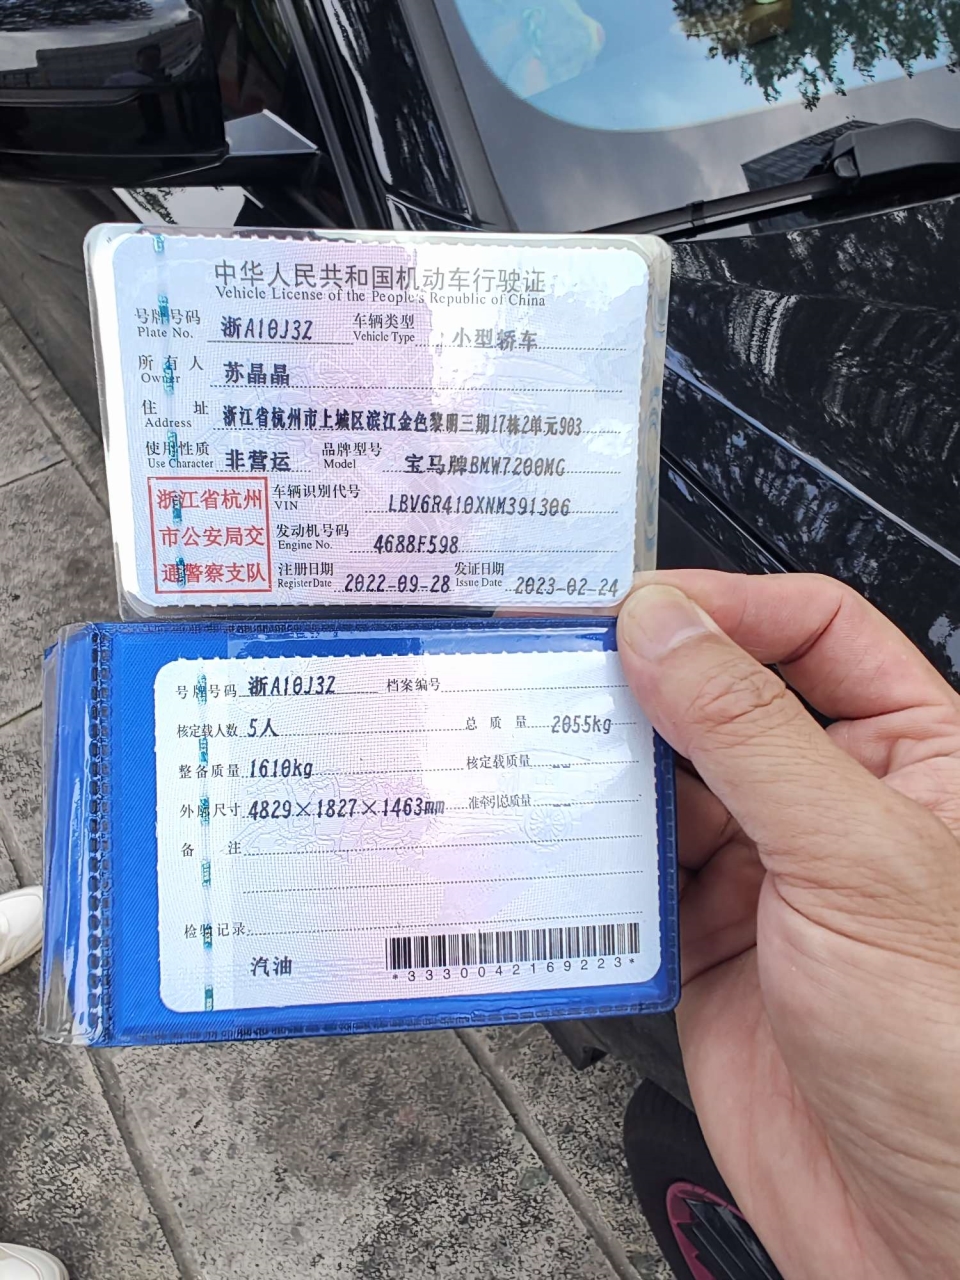 中华人民共和国机动车行驶证
Vehicle License of the People's Republic of China
号牌号码 浙A10J3Z 车辆类型 小型轿车
Plate No. Vehicle Type
所有人 苏晶晶
Owner
住址 浙江省杭州市上城区滨江金色黎明三期17栋2单元903
Address
使用性质 非营运 品牌型号 宝马牌BMW7200MG
Use Character Model
浙江省杭州市公安局交通警察支队
车辆识别代号 LBV6R410XNM391306
VIN
发动机号码 4688F598
Engine No.
注册日期 2022-09-28 发证日期 2023-02-24
Register Date Issue Date
号牌号码 浙A10J3Z 档案编号
核定载人数 5人 总质量 2055kg
整备质量 1610kg 核定载质量 --
外廓尺寸 4829×1827×1463mm 准牵引总质量 --
备注
检验记录
汽油
*3330042169223*